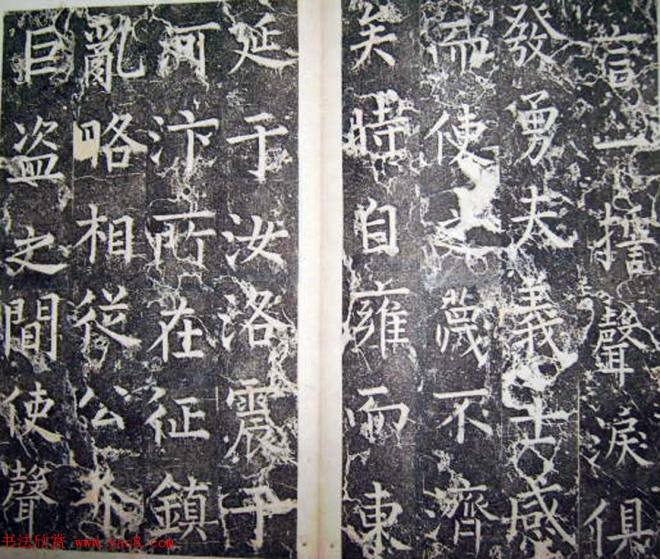 言一聲淚俱
發勇夫義士感
而使之蕆不濟
矣時自雍而東
延于汝洛震于
河汴所在征鎮
亂略相從公介
巨盗之間使聲
书法欣赏 www.yac8.com